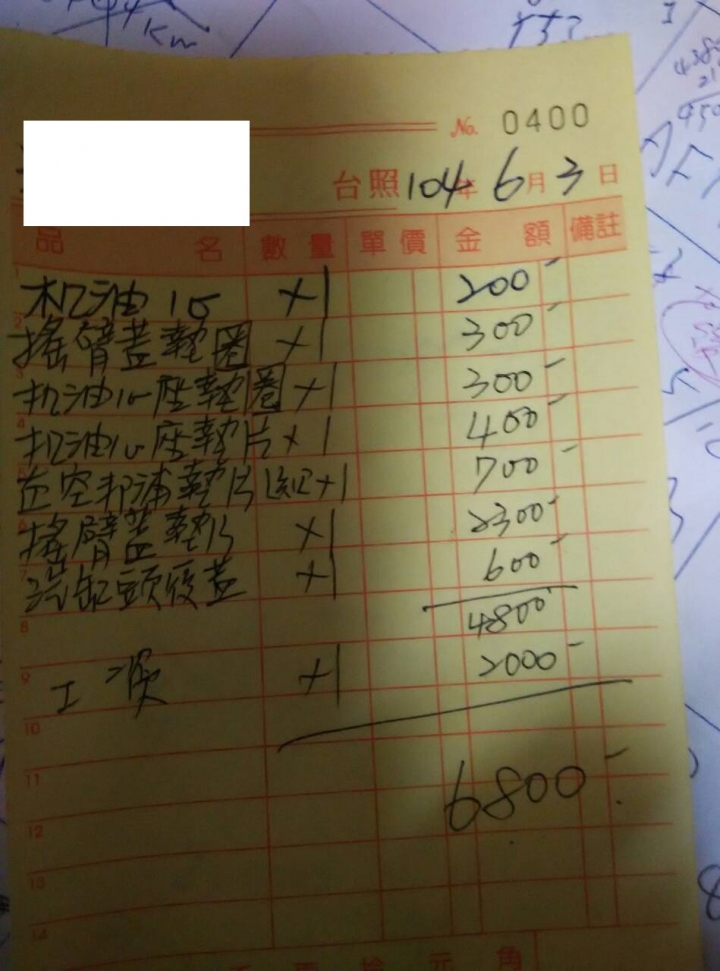 No. 0400
台照 104年 6月 3日
品名 數量 單價 金額 備註
1 机油心 x1 200-
2 搖臂蓋墊圈 x1 300-
3 机油心座墊圈 x1 300-
4 机油心座墊片 x1 400-
5 墊片 x1 700-
6 搖臂蓋墊片 x1 2300-
7 汽缸頭後蓋 x1 600-
8 4800-
9 工資 x1 2000-
10
11 6800-
12
13
14
元 角